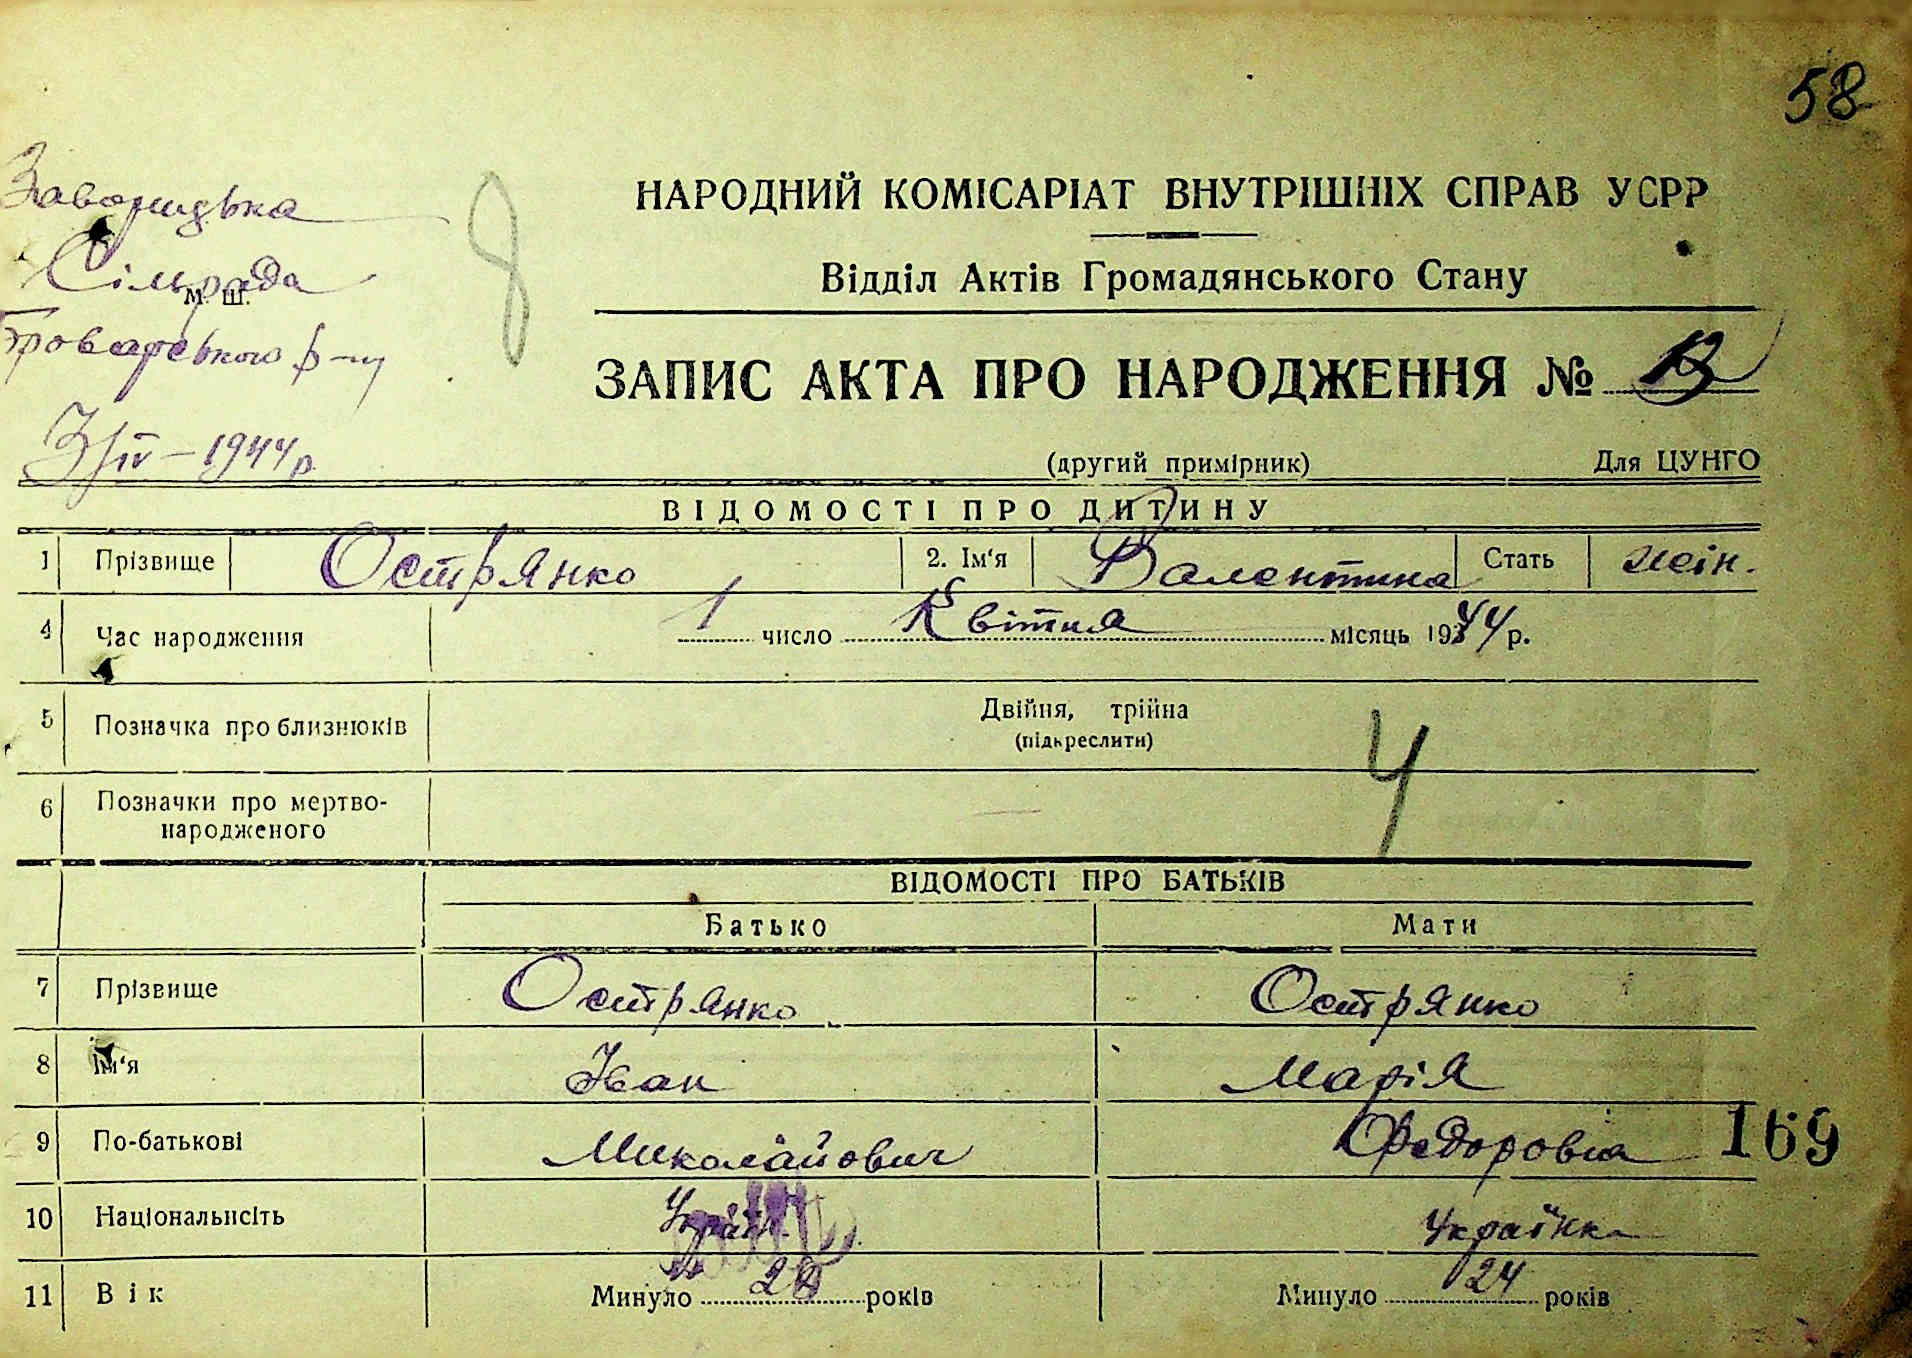 58
Заворицька
НАРОДНИЙ КОМІСАРІАТ ВНУТРІШНІХ СПРАВ УСРР
Сільрада
М. Ш.
Відділ Актів Громадянського Стану
Броварського р-ну
ЗАПИС АКТА ПРО НАРОДЖЕННЯ №
3/IV – 1944 р.
(другий примірник) Для ЦУНГО
ВІДОМОСТІ ПРО ДИТИНУ
1 Прізвище Острянко 2. Ім'я Валентина Стать жін.
4 Час народження 1 число Квітня місяць 1944 р.
5 Позначка про близнюків Двійня, трійна
(підкреслити)
Ч
6 Позначки про мертво-
народженого
ВІДОМОСТІ ПРО БАТЬКІВ
Батько Мати
7 Прізвище Острянко Острянко
8 Ім'я Іван Марія
9 По-батькові Миколайович Федоровна 169
10 Національність Украін. Украінка
11 Вік Минуло років Минуло 24 років